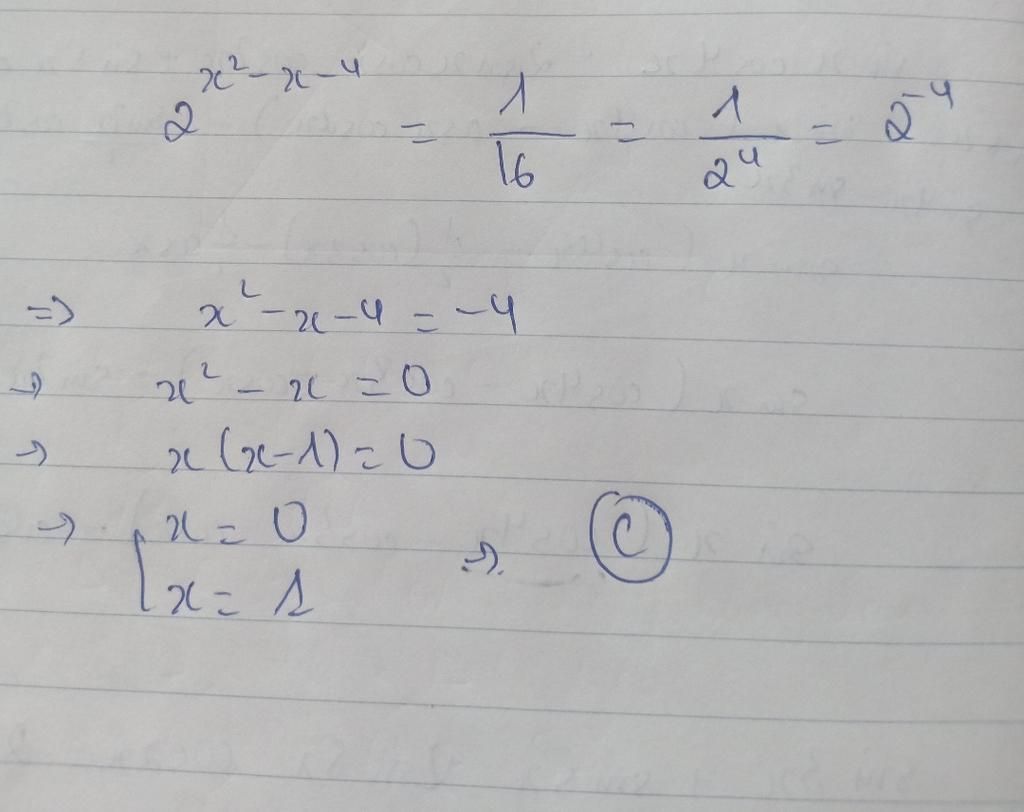 2^{x²-x-4} = 1/16 = 1/2⁴ = 2⁻⁴
=> x²-x-4 = -4
→ x² - x = 0
→ x(x-1) = 0
→ [x = 0
x = 1 → C